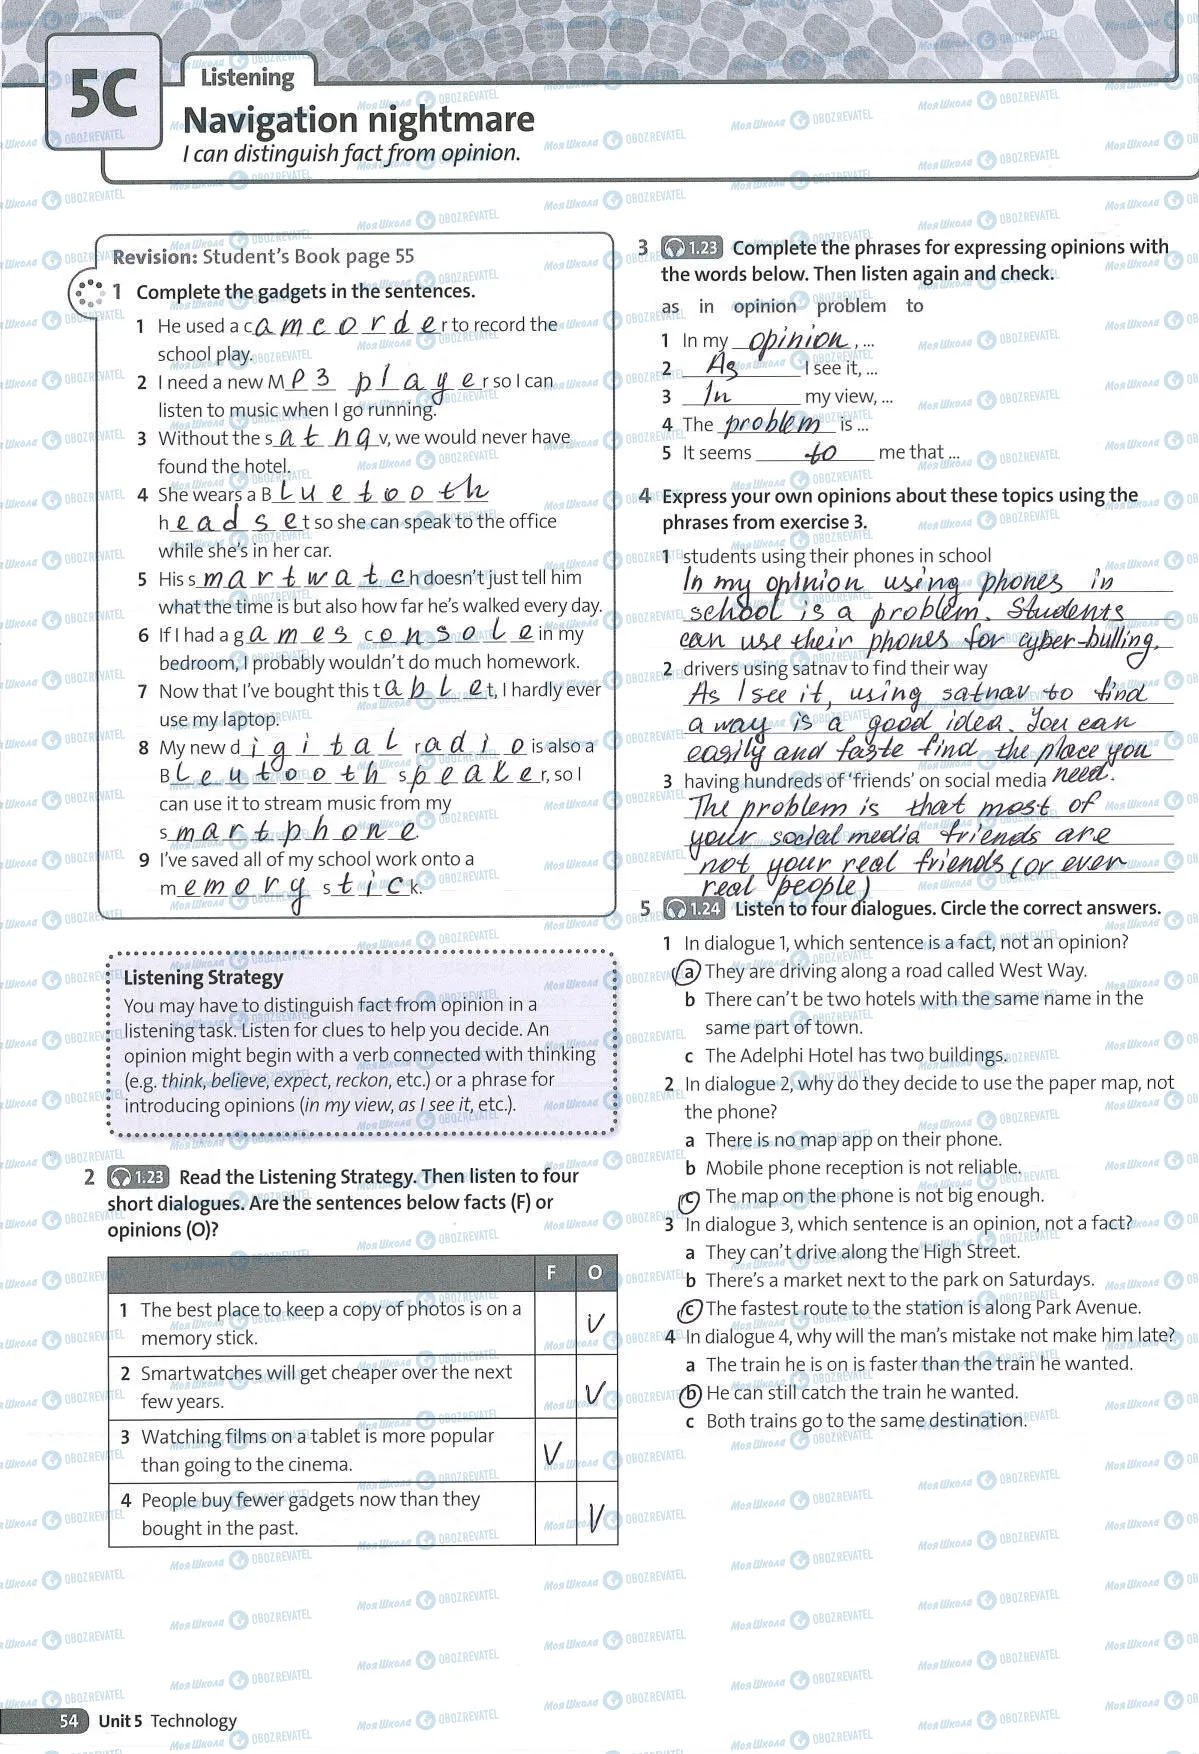 5C
Listening
Navigation nightmare
I can distinguish fact from opinion.
Revision: Student's Book page 55
1 Complete the gadgets in the sentences.
1 He used a camcorder to record the
school play.
2 I need a new MP3 player so I can
listen to music when I go running.
3 Without the satnav, we would never have
found the hotel.
4 She wears a Bluetooth
headset so she can speak to the office
while she's in her car.
5 His smartwatch doesn't just tell him
what the time is but also how far he's walked every day.
6 If I had a games console in my
bedroom, I probably wouldn't do much homework.
7 Now that I've bought this tablet, I hardly ever
use my laptop.
8 My new digital radio is also a
Bleutooth speaker, so I
can use it to stream music from my
smartphone
9 I've saved all of my school work onto a
memory stick.
Listening Strategy
You may have to distinguish fact from opinion in a
listening task. Listen for clues to help you decide. An
opinion might begin with a verb connected with thinking
(e.g. think, believe, expect, reckon, etc.) or a phrase for
introducing opinions (in my view, as I see it, etc.).
2 1.23 Read the Listening Strategy. Then listen to four
short dialogues. Are the sentences below facts (F) or
opinions (O)?
F O
1 The best place to keep a copy of photos is on a
memory stick. V
2 Smartwatches will get cheaper over the next
few years. V
3 Watching films on a tablet is more popular
than going to the cinema. V
4 People buy fewer gadgets now than they
bought in the past. V
3 1.23 Complete the phrases for expressing opinions with
the words below. Then listen again and check.
as in opinion problem to
1 In my opinion, ...
2 As I see it, ...
3 In my view, ...
4 The problem is ...
5 It seems to me that ...
4 Express your own opinions about these topics using the
phrases from exercise 3.
1 students using their phones in school
In my opinion using phones in
school is a problem. Students
can use their phones for cyber-bulling.
2 drivers using satnav to find their way
As I see it, using satnav to find
a way is a good idea. You can
easily and faste find the place you
need.
3 having hundreds of 'friends' on social media
The problem is that most of
your social media friends are
not your real friends (or even
real people)
5 1.24 Listen to four dialogues. Circle the correct answers.
1 In dialogue 1, which sentence is a fact, not an opinion?
a They are driving along a road called West Way.
b There can't be two hotels with the same name in the
same part of town.
c The Adelphi Hotel has two buildings.
2 In dialogue 2, why do they decide to use the paper map, not
the phone?
a There is no map app on their phone.
b Mobile phone reception is not reliable.
c The map on the phone is not big enough.
3 In dialogue 3, which sentence is an opinion, not a fact?
a They can't drive along the High Street.
b There's a market next to the park on Saturdays.
c The fastest route to the station is along Park Avenue.
4 In dialogue 4, why will the man's mistake not make him late?
a The train he is on is faster than the train he wanted.
b He can still catch the train he wanted.
c Both trains go to the same destination.
54 Unit 5 Technology
Моя Школа OBOZREVATEL